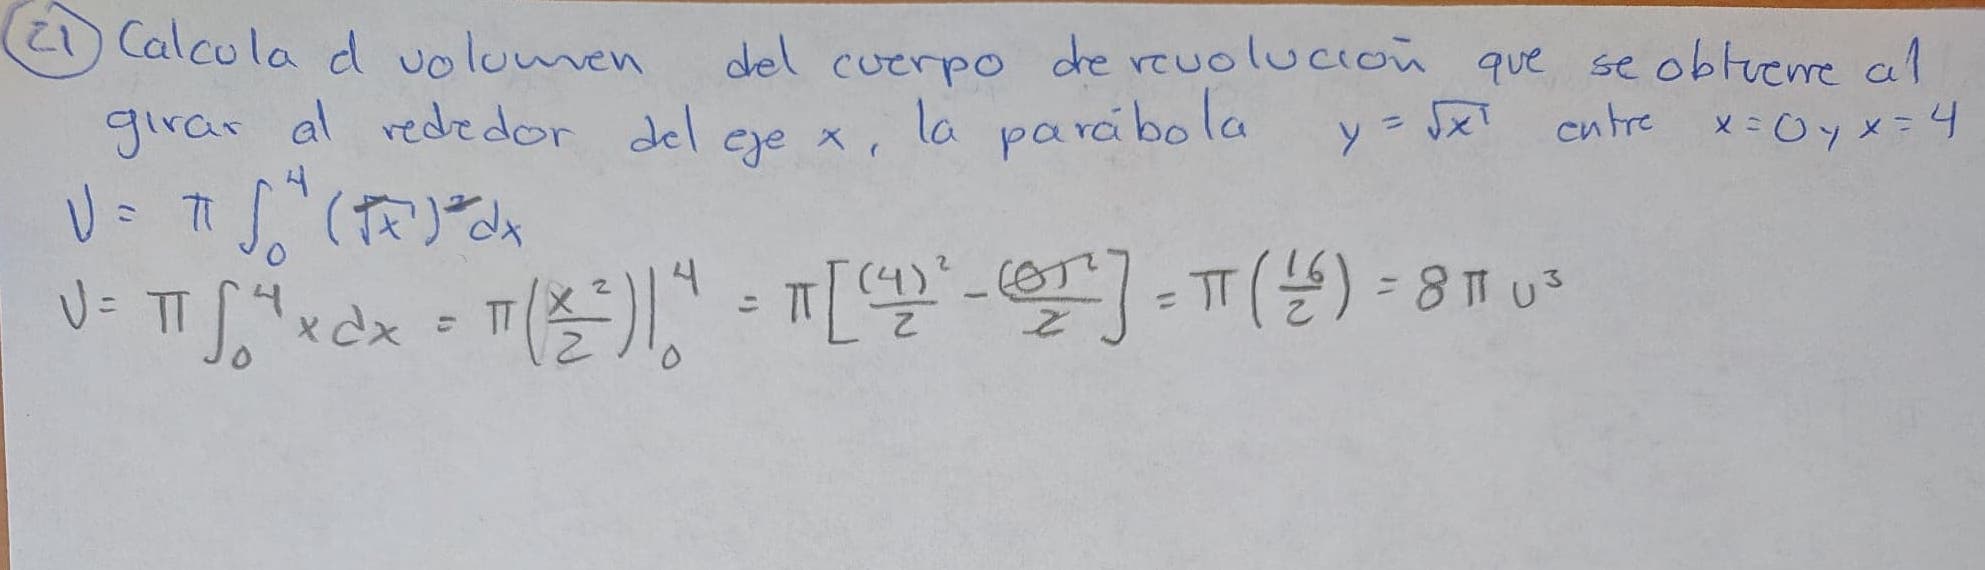 21) Calcula el volumen del cuerpo de revolución que se obtiene al
girar al rededor del eje x, la parábola y = √x entre x = 0 y x = 4
V = π ∫₀⁴ (√x)² dx
V = π ∫₀⁴ x dx = π(x²/2)|₀⁴ = π[(4)²/2 - (0)²/2] = π(16/2) = 8π u³